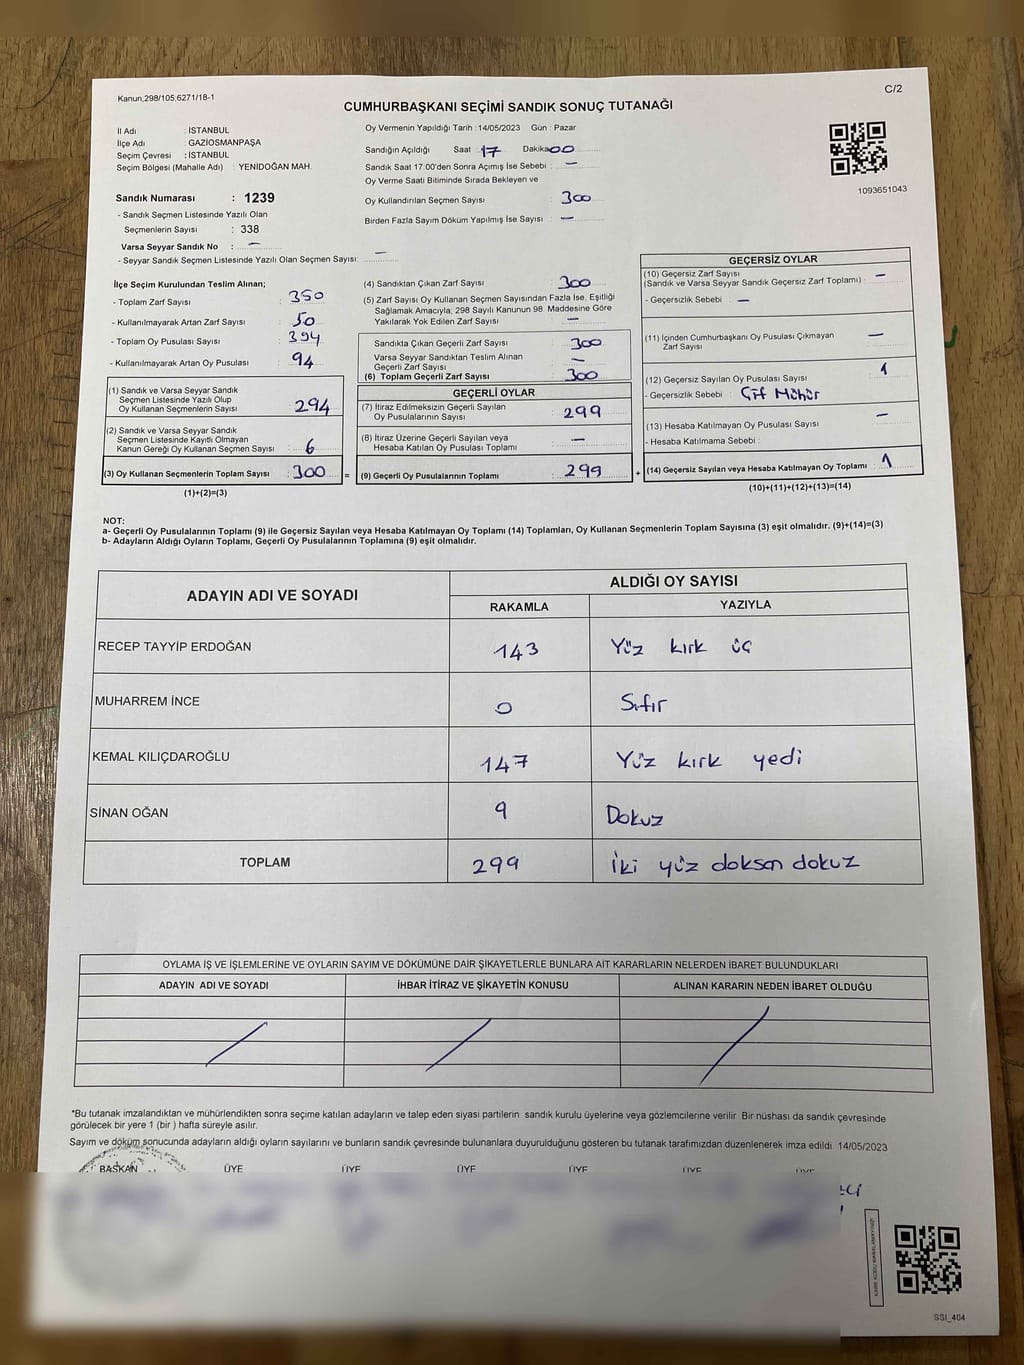 Kanun,298/105;6271/18-1
C/2
CUMHURBAŞKANI SEÇİMİ SANDIK SONUÇ TUTANAĞI
1093651043
İl Adı : İSTANBUL
İlçe Adı : GAZİOSMANPAŞA
Seçim Çevresi : İSTANBUL
Seçim Bölgesi (Mahalle Adı) : YENİDOĞAN MAH.
Sandık Numarası : 1239
- Sandık Seçmen Listesinde Yazılı Olan
Seçmenlerin Sayısı : 338
Varsa Seyyar Sandık No : —
- Seyyar Sandık Seçmen Listesinde Yazılı Olan Seçmen Sayısı: —
Oy Vermenin Yapıldığı Tarih :14/05/2023 Gün : Pazar
Sandığın Açıldığı Saat 17 Dakika 00
Sandık Saat 17:00'den Sonra Açımış İse Sebebi : —
Oy Verme Saati Bitiminde Sırada Bekleyen ve
Oy Kullandırılan Seçmen Sayısı : 300
Birden Fazla Sayım Döküm Yapılmış İse Sayısı : —
İlçe Seçim Kurulundan Teslim Alınan;
- Toplam Zarf Sayısı : 350
- Kullanılmayarak Artan Zarf Sayısı : 50
- Toplam Oy Pusulası Sayısı : 394
- Kullanılmayarak Artan Oy Pusulası : 94
(1) Sandık ve Varsa Seyyar Sandık
Seçmen Listesinde Yazılı Olup
Oy Kullanan Seçmenlerin Sayısı : 294
(2) Sandık ve Varsa Seyyar Sandık
Seçmen Listesinde Kayıtlı Olmayan
Kanun Gereği Oy Kullanan Seçmen Sayısı : 6
(3) Oy Kullanan Seçmenlerin Toplam Sayısı : 300 =
(1)+(2)=(3)
(4) Sandıktan Çıkan Zarf Sayısı : 300
(5) Zarf Sayısı Oy Kullanan Seçmen Sayısından Fazla İse, Eşitliği
Sağlamak Amacıyla, 298 Sayılı Kanunun 98. Maddesine Göre
Yakılarak Yok Edilen Zarf Sayısı : —
Sandıkta Çıkan Geçerli Zarf Sayısı : 300
Varsa Seyyar Sandıktan Teslim Alınan
Geçerli Zarf Sayısı : —
(6) Toplam Geçerli Zarf Sayısı : 300
GEÇERLİ OYLAR
(7) İtiraz Edilmeksizin Geçerli Sayılan
Oy Pusulalarının Sayısı : 299
(8) İtiraz Üzerine Geçerli Sayılan veya
Hesaba Katılan Oy Pusulası Toplamı : —
(9) Geçerli Oy Pusulalarının Toplamı : 299 +
GEÇERSİZ OYLAR
(10) Geçersiz Zarf Sayısı
(Sandık ve Varsa Seyyar Sandık Geçersiz Zarf Toplamı) : —
- Geçersizlik Sebebi : —
(11) İçinden Cumhurbaşkanı Oy Pusulası Çıkmayan
Zarf Sayısı : —
(12) Geçersiz Sayılan Oy Pusulası Sayısı : 1
- Geçersizlik Sebebi : Çift Mühür
(13) Hesaba Katılmayan Oy Pusulası Sayısı : —
- Hesaba Katılmama Sebebi :
(14) Geçersiz Sayılan veya Hesaba Katılmayan Oy Toplamı : 1
(10)+(11)+(12)+(13)=(14)
NOT:
a- Geçerli Oy Pusulalarının Toplamı (9) ile Geçersiz Sayılan veya Hesaba Katılmayan Oy Toplamı (14) Toplamları, Oy Kullanan Seçmenlerin Toplam Sayısına (3) eşit olmalıdır. (9)+(14)=(3)
b- Adayların Aldığı Oyların Toplamı, Geçerli Oy Pusulalarının Toplamına (9) eşit olmalıdır.
ADAYIN ADI VE SOYADI
ALDIĞI OY SAYISI
RAKAMLA YAZIYLA
RECEP TAYYİP ERDOĞAN 143 Yüz kırk üç
MUHARREM İNCE 0 Sıfır
KEMAL KILIÇDAROĞLU 147 Yüz kırk yedi
SİNAN OĞAN 9 Dokuz
TOPLAM 299 İki yüz doksan dokuz
OYLAMA İŞ VE İŞLEMLERİNE VE OYLARIN SAYIM VE DÖKÜMÜNE DAİR ŞİKAYETLERLE BUNLARA AİT KARARLARIN NELERDEN İBARET BULUNDUKLARI
ADAYIN ADI VE SOYADI İHBAR İTİRAZ VE ŞİKAYETİN KONUSU ALINAN KARARIN NEDEN İBARET OLDUĞU
*Bu tutanak imzalandıktan ve mühürlendikten sonra seçime katılan adayların ve talep eden siyasi partilerin sandık kurulu üyelerine veya gözlemcilerine verilir. Bir nüshası da sandık çevresinde
görülecek bir yere 1 (bir ) hafta süreyle asılır.
Sayım ve döküm sonucunda adayların aldığı oyların sayılarını ve bunların sandık çevresinde bulunanlara duyurulduğunu gösteren bu tutanak tarafımızdan düzenlenerek imza edildi. 14/05/2023
BAŞKAN ÜYE ÜYE ÜYE ÜYE ÜYE ÜYE
SSI_404